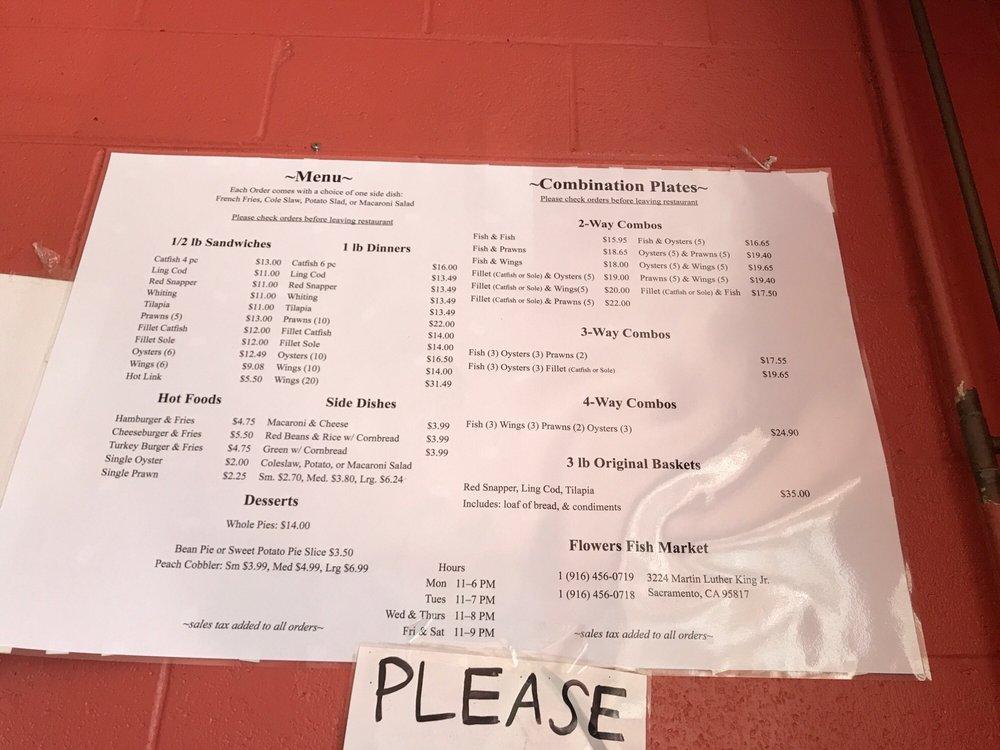 ~Menu~
Each Order comes with a choice of one side dish:
French Fries, Cole Slaw, Potato Slad, or Macaroni Salad
Please check orders before leaving restaurant
1/2 lb Sandwiches
Catfish 4 pc $13.00
Ling Cod $11.00
Red Snapper $11.00
Whiting $11.00
Tilapia $11.00
Prawns (5) $13.00
Fillet Catfish $12.00
Fillet Sole $12.00
Oysters (6) $12.49
Wings (6) $9.08
Hot Link $5.50
1 lb Dinners
Catfish 6 pc $16.00
Ling Cod $13.49
Red Snapper $13.49
Whiting $13.49
Tilapia $13.49
Prawns (10) $22.00
Fillet Catfish $14.00
Fillet Sole $14.00
Oysters (10) $16.50
Wings (10) $14.00
Wings (20) $31.49
Hot Foods
Hamburger & Fries $4.75
Cheeseburger & Fries $5.50
Turkey Burger & Fries $4.75
Single Oyster $2.00
Single Prawn $2.25
Side Dishes
Macaroni & Cheese $3.99
Red Beans & Rice w/ Cornbread $3.99
Green w/ Cornbread $3.99
Coleslaw, Potato, or Macaroni Salad
Sm. $2.70, Med. $3.80, Lrg. $6.24
Desserts
Whole Pies: $14.00
Bean Pie or Sweet Potato Pie Slice $3.50
Peach Cobbler: Sm $3.99, Med $4.99, Lrg $6.99
~sales tax added to all orders~
Hours
Mon 11–6 PM
Tues 11–7 PM
Wed & Thurs 11–8 PM
Fri & Sat 11–9 PM
~Combination Plates~
Please check orders before leaving restaurant
2-Way Combos
Fish & Fish $15.95
Fish & Prawns $18.65
Fish & Wings $18.00
Fillet (Catfish or Sole) & Oysters (5) $19.00
Fillet (Catfish or Sole) & Wings(5) $20.00
Fillet (Catfish or Sole) & Prawns (5) $22.00
Fish & Oysters (5) $16.65
Oysters (5) & Prawns (5) $19.40
Oysters (5) & Wings (5) $19.65
Prawns (5) & Wings (5) $19.40
Fillet (Catfish or Sole) & Fish $17.50
3-Way Combos
Fish (3) Oysters (3) Prawns (2) $17.55
Fish (3) Oysters (3) Fillet (Catfish or Sole) $19.65
4-Way Combos
Fish (3) Wings (3) Prawns (2) Oysters (3) $24.90
3 lb Original Baskets
Red Snapper, Ling Cod, Tilapia $35.00
Includes: loaf of bread, & condiments
Flowers Fish Market
1 (916) 456-0719 3224 Martin Luther King Jr.
1 (916) 456-0718 Sacramento, CA 95817
~sales tax added to all orders~
PLEASE